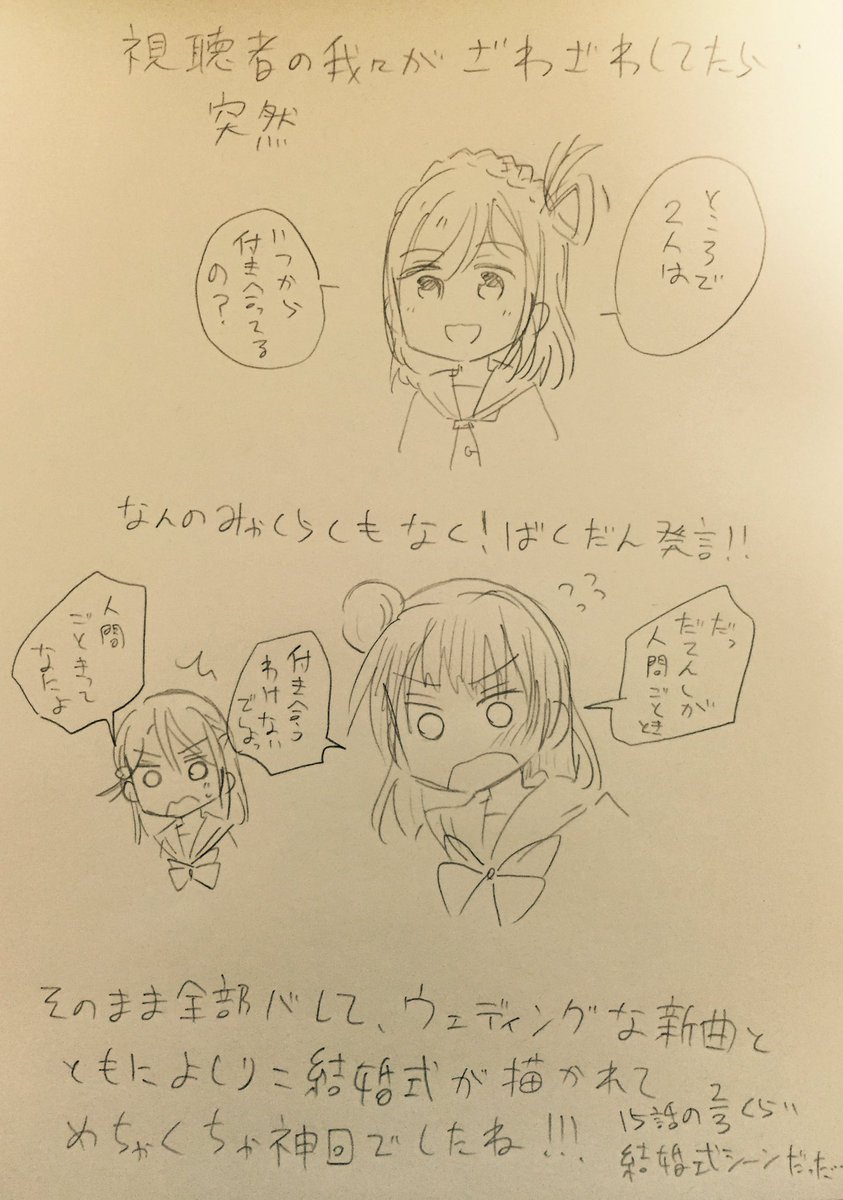 視聴者の我々がざわざわしてたら
突然
ところで
2人は
いつから
付き合ってる
の？
なんのみゃくらくもなく！ばくだん発言!!
だっ
だてんしが
人間ごとき
付き合う
わけない
でしょっ
人間
ごときって
なによ
そのまま全部バレて、ウェディングな新曲と
ともによしりこ結婚式が描かれて
めちゃくちゃ神回でしたね!!!
15話の2/3くらい
結婚式シーンだった